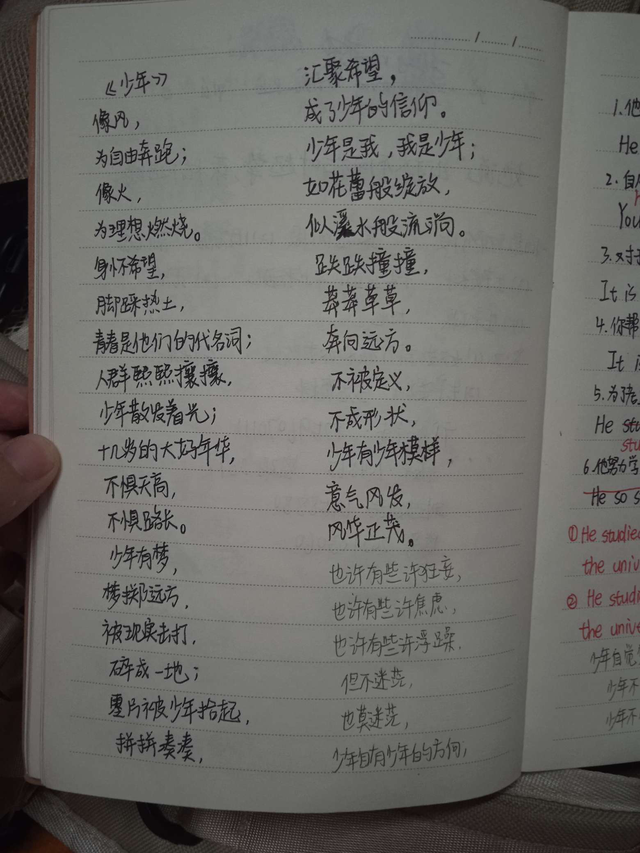 《少年》
像风，
为自由奔跑；
像火，
为理想燃烧。
身怀希望，
脚踩热土，
青春是他们的代名词；
人群熙熙攘攘，
少年散发着光；
十几岁的大好年华，
不惧天高，
不惧路长。
少年有梦，
梦掷远方，
被现实击打，
碎成一地；
星片被少年拾起，
拼拼凑凑，
汇聚希望，
成了少年的信仰。
少年是我，我是少年；
如花蕾般绽放，
似溪水般流淌。
跌跌撞撞，
莽莽草草，
奔向远方。
不被定义，
不成形状，
少年有少年模样，
意气风发，
风华正茂。
也许有些许狂妄，
也许有些许焦虑，
也许有些许浮躁，
但不迷茫，
也莫迷茫，
少年自有少年的方向；
1. 他
He
2. 自
You
3. 对于
It is
4. 你帮
It
5. 为了
He stu
stu
6. 他努力学
He so s
① He studied
the univer
② He studi
the unive
少年自觉
少年不
少年不